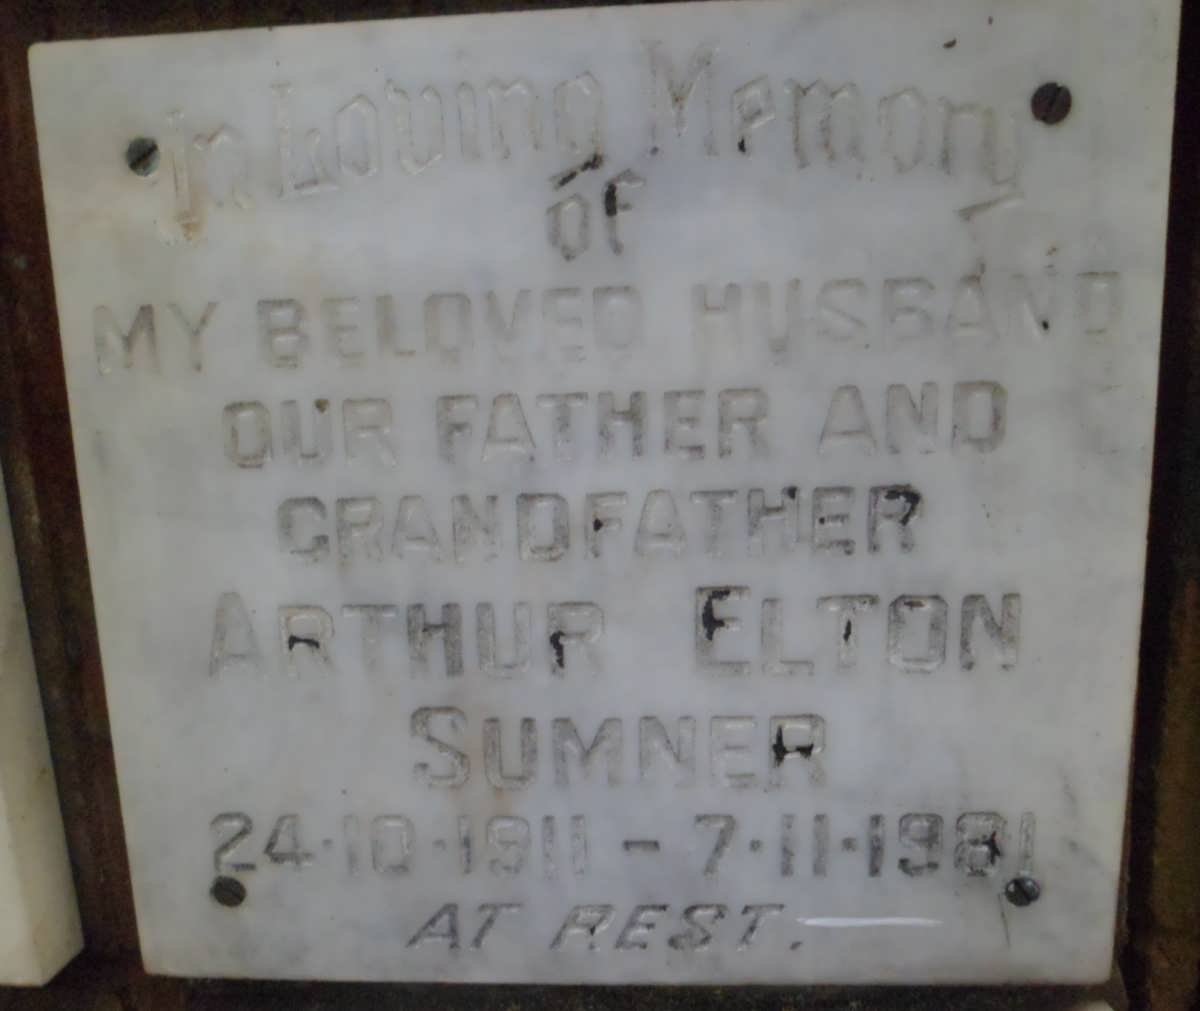 In Loving Memory
of
MY BELOVED HUSBAND
OUR FATHER AND
GRANDFATHER
ARTHUR ELTON
SUMNER
24·10·1911 – 7·11·1981
AT REST.